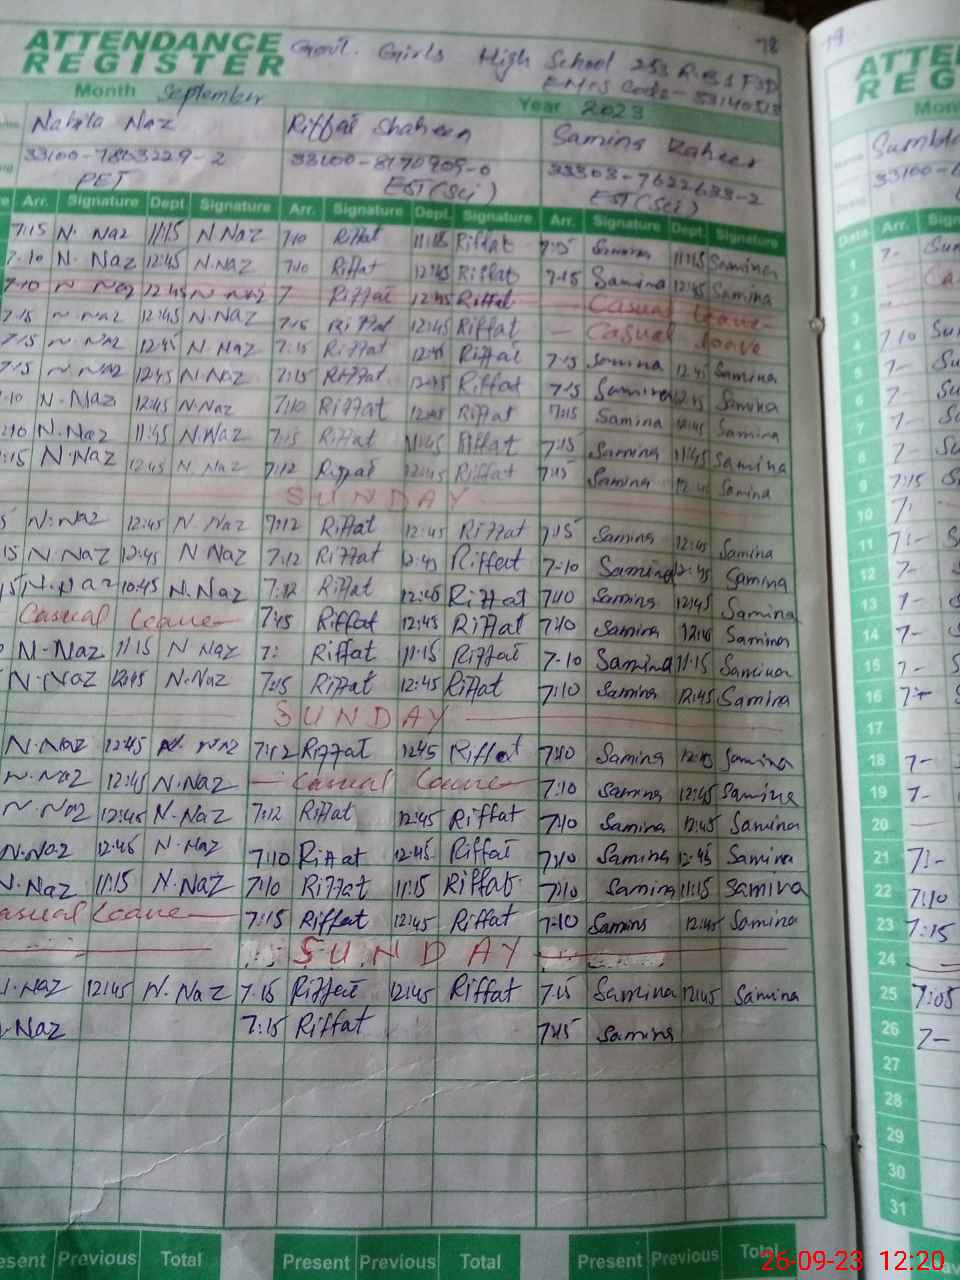 ATTENDANCE REGISTER Govt. Girls High School 253 R.B
78
Month September Year 2023
Nabila Naz Riffat Shaheen Samina
PET EST (Sci) EST (Sci)
Arr. Signature Dept Signature Arr. Signature Dept. Signature Arr. Signature Dept. Signature
7:15 N. Naz 11:15 N Naz 7:10 Riffat Riffat 7:15 Samina 11:15 Samina
7:10 N. Naz 12:45 N. Naz 7:10 Riffat 12:45 Riffat 7:15 Samina 12:45 Samina
7:10 N Naz 12:45 N Naz 7 Riffat 12:45 Riffat Casual leave
7:15 N. Naz 12:45 N. Naz 7:15 Riffat 12:45 Riffat Casual leave
7:15 N. Naz 12:45 N. Naz 7:15 Riffat 12:45 Riffat 7:15 Samina 12:45 Samina
7:15 N. Naz 12:45 N. Naz 7:15 Riffat 12:45 Riffat 7:15 Samina 12:45 Samina
:10 N. Naz 12:45 N. Naz 7:10 Riffat 12:45 Riffat 7:15 Samina 12:45 Samina
:10 N. Naz 11:45 N. Naz 7:15 Riffat 11:45 Riffat 7:15 Samina 11:45 Samina
:15 N. Naz 12:45 N. Naz 7:12 Riffat 12:45 Riffat 7:15 Samina Samina
SUNDAY
5 N. Naz 12:45 N. Naz 7:12 Riffat 12:45 Riffat 7:15 Samina 12:45 Samina
15 N. Naz 12:45 N. Naz 7:12 Riffat 12:45 Riffat 7:10 Samina 12:45 Samina
15 N. Naz 10:45 N. Naz 7:12 Riffat 12:45 Riffat 7:10 Samina 12:45 Samina
Casual leave 7:15 Riffat 12:45 Riffat 7:10 Samina Samina
N. Naz 11:15 N Naz 7: Riffat 11:15 Riffat 7:10 Samina 11:15 Samina
N. Naz 12:45 N. Naz 7:15 Riffat 12:45 Riffat 7:10 Samina 12:45 Samina
SUNDAY
N. Naz 12:45 N. Naz 7:12 Riffat 12:45 Riffat 7:10 Samina Samina
N. Naz 12:45 N. Naz Casual leave 7:10 Samina 12:45 Samina
N. Naz 12:45 N. Naz 7:12 Riffat 12:45 Riffat 7:10 Samina 12:45 Samina
N. Naz 12:45 N. Naz 7:10 Riffat 12:45 Riffat 7:10 Samina 12:45 Samina
N. Naz 11:15 N. Naz 7:10 Riffat 11:15 Riffat 7:10 Samina 11:15 Samina
asual leave 7:15 Riffat 12:45 Riffat 7:10 Samina 12:45 Samina
SUNDAY
N. Naz 12:45 N. Naz 7:15 Riffat 12:45 Riffat 7:15 Samina 12:45 Samina
Naz 7:15 Riffat 7:15 Samina
esent Previous Total Present Previous Total Present Previous Total
19
ATTE
REG
Mon
Date Arr. Sign
1 7-
2
3
4 7:10
5 7-
6 7-
7 7-
8 7-
9 7:15
10
11
12 7-
13 7-
14 7-
15 7-
16 7-
17
18 7-
19 7-
20
21 7:-
22 7:10
23 7:15
24
25 7:05
26 7-
27
28
29
30
31
26-09-23 12:20